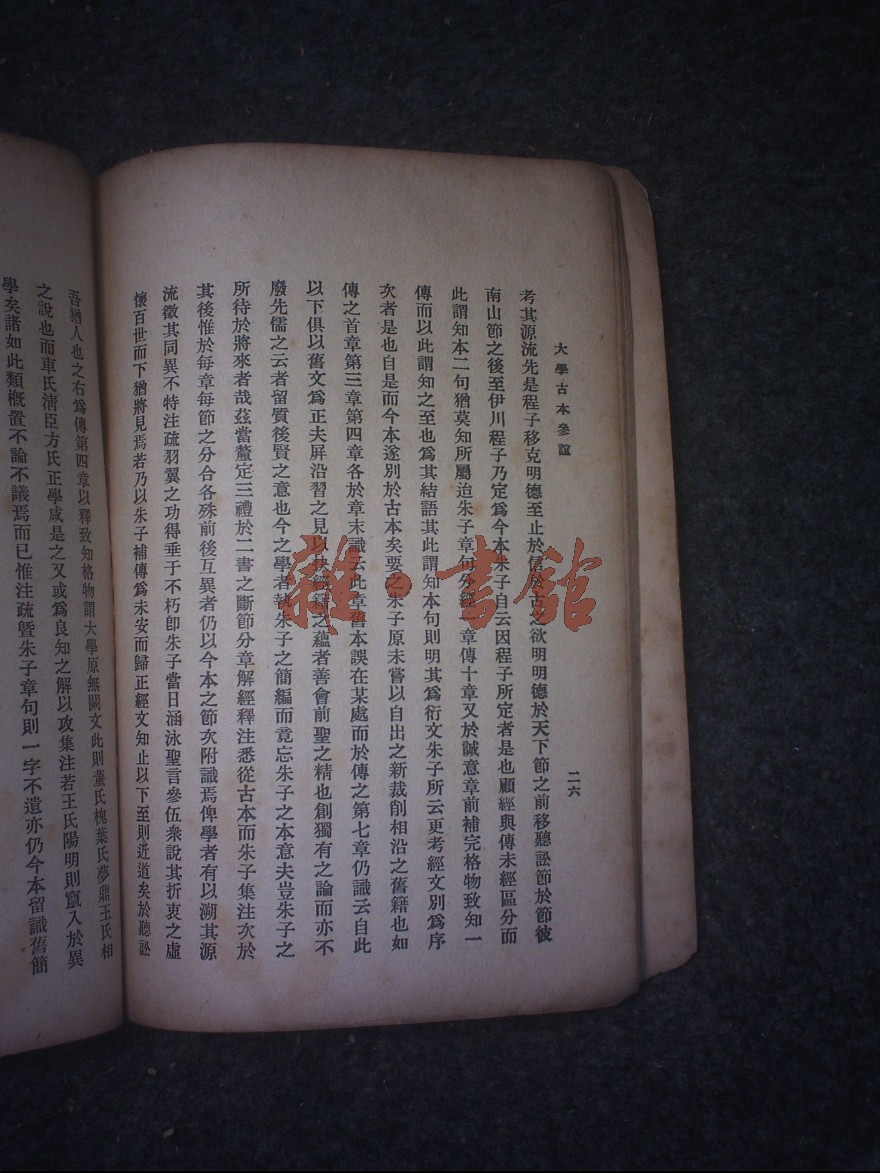 大學古本參誼
二六
考其源流先是程子移克明德至止於信於古之欲明明德於天下節之前移聽訟節於節彼
南山節之後至伊川程子乃定爲今本朱子自云因程子所定者是也顧經與傳未經區分而
此謂知本二句猶莫知所屬迨朱子章句分經一章傳十章又於誠意章前補完格物致知一
傳而以此謂知之至也爲其結語其此謂知本句則明其爲衍文朱子所云更考經文別爲序
次者是也自是而今本遂別於古本矣要之朱子原未嘗以自出之新裁削相沿之舊籍也如
傳之首章第三章第四章各於章末識云此章舊本誤在某處而於傳之第七章仍識云自此
以下俱以舊文爲正夫屏沿習之見以抉經籍之蘊者善會前聖之精也創獨有之論而亦不
廢先儒之云者留質後賢之意也今之學者執朱子之簡編而竟忘朱子之本意夫豈朱子之
所待於將來者哉茲當釐定三禮於二書之斷節分章解經釋注悉從古本而朱子集注次於
其後惟於每章每節之分合各殊前後互異者仍以今本之節次附識焉俾學者有以溯其源
流徵其同異不特注疏羽翼之功得垂于不朽卽朱子當日涵泳聖言參伍衆說其折衷之虛
懷百世而下猶將見焉若乃以朱子補傳爲未安而歸正經文知止以下至則近道矣於聽訟
吾猶人也之右爲傳第四章以釋致知格物謂大學原無闕文此則董氏槐葉氏夢鼎王氏相
之說也而車氏清臣方氏正學咸是之又或爲良知之解以攻集注若王氏陽明則竄入於異
學矣諸如此類概置不論不議焉而已惟注疏曁朱子章句則一字不遺亦仍今本留識舊簡
雜·書館